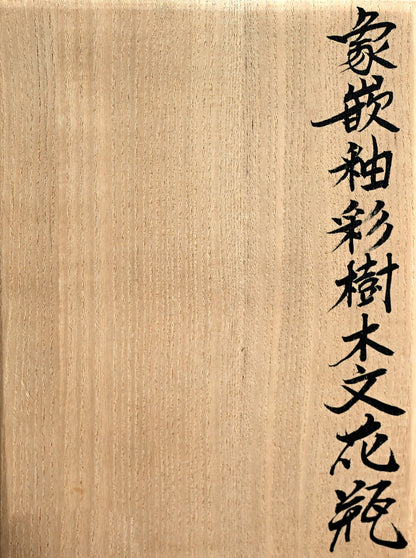 象嵌釉彩樹木文花瓶